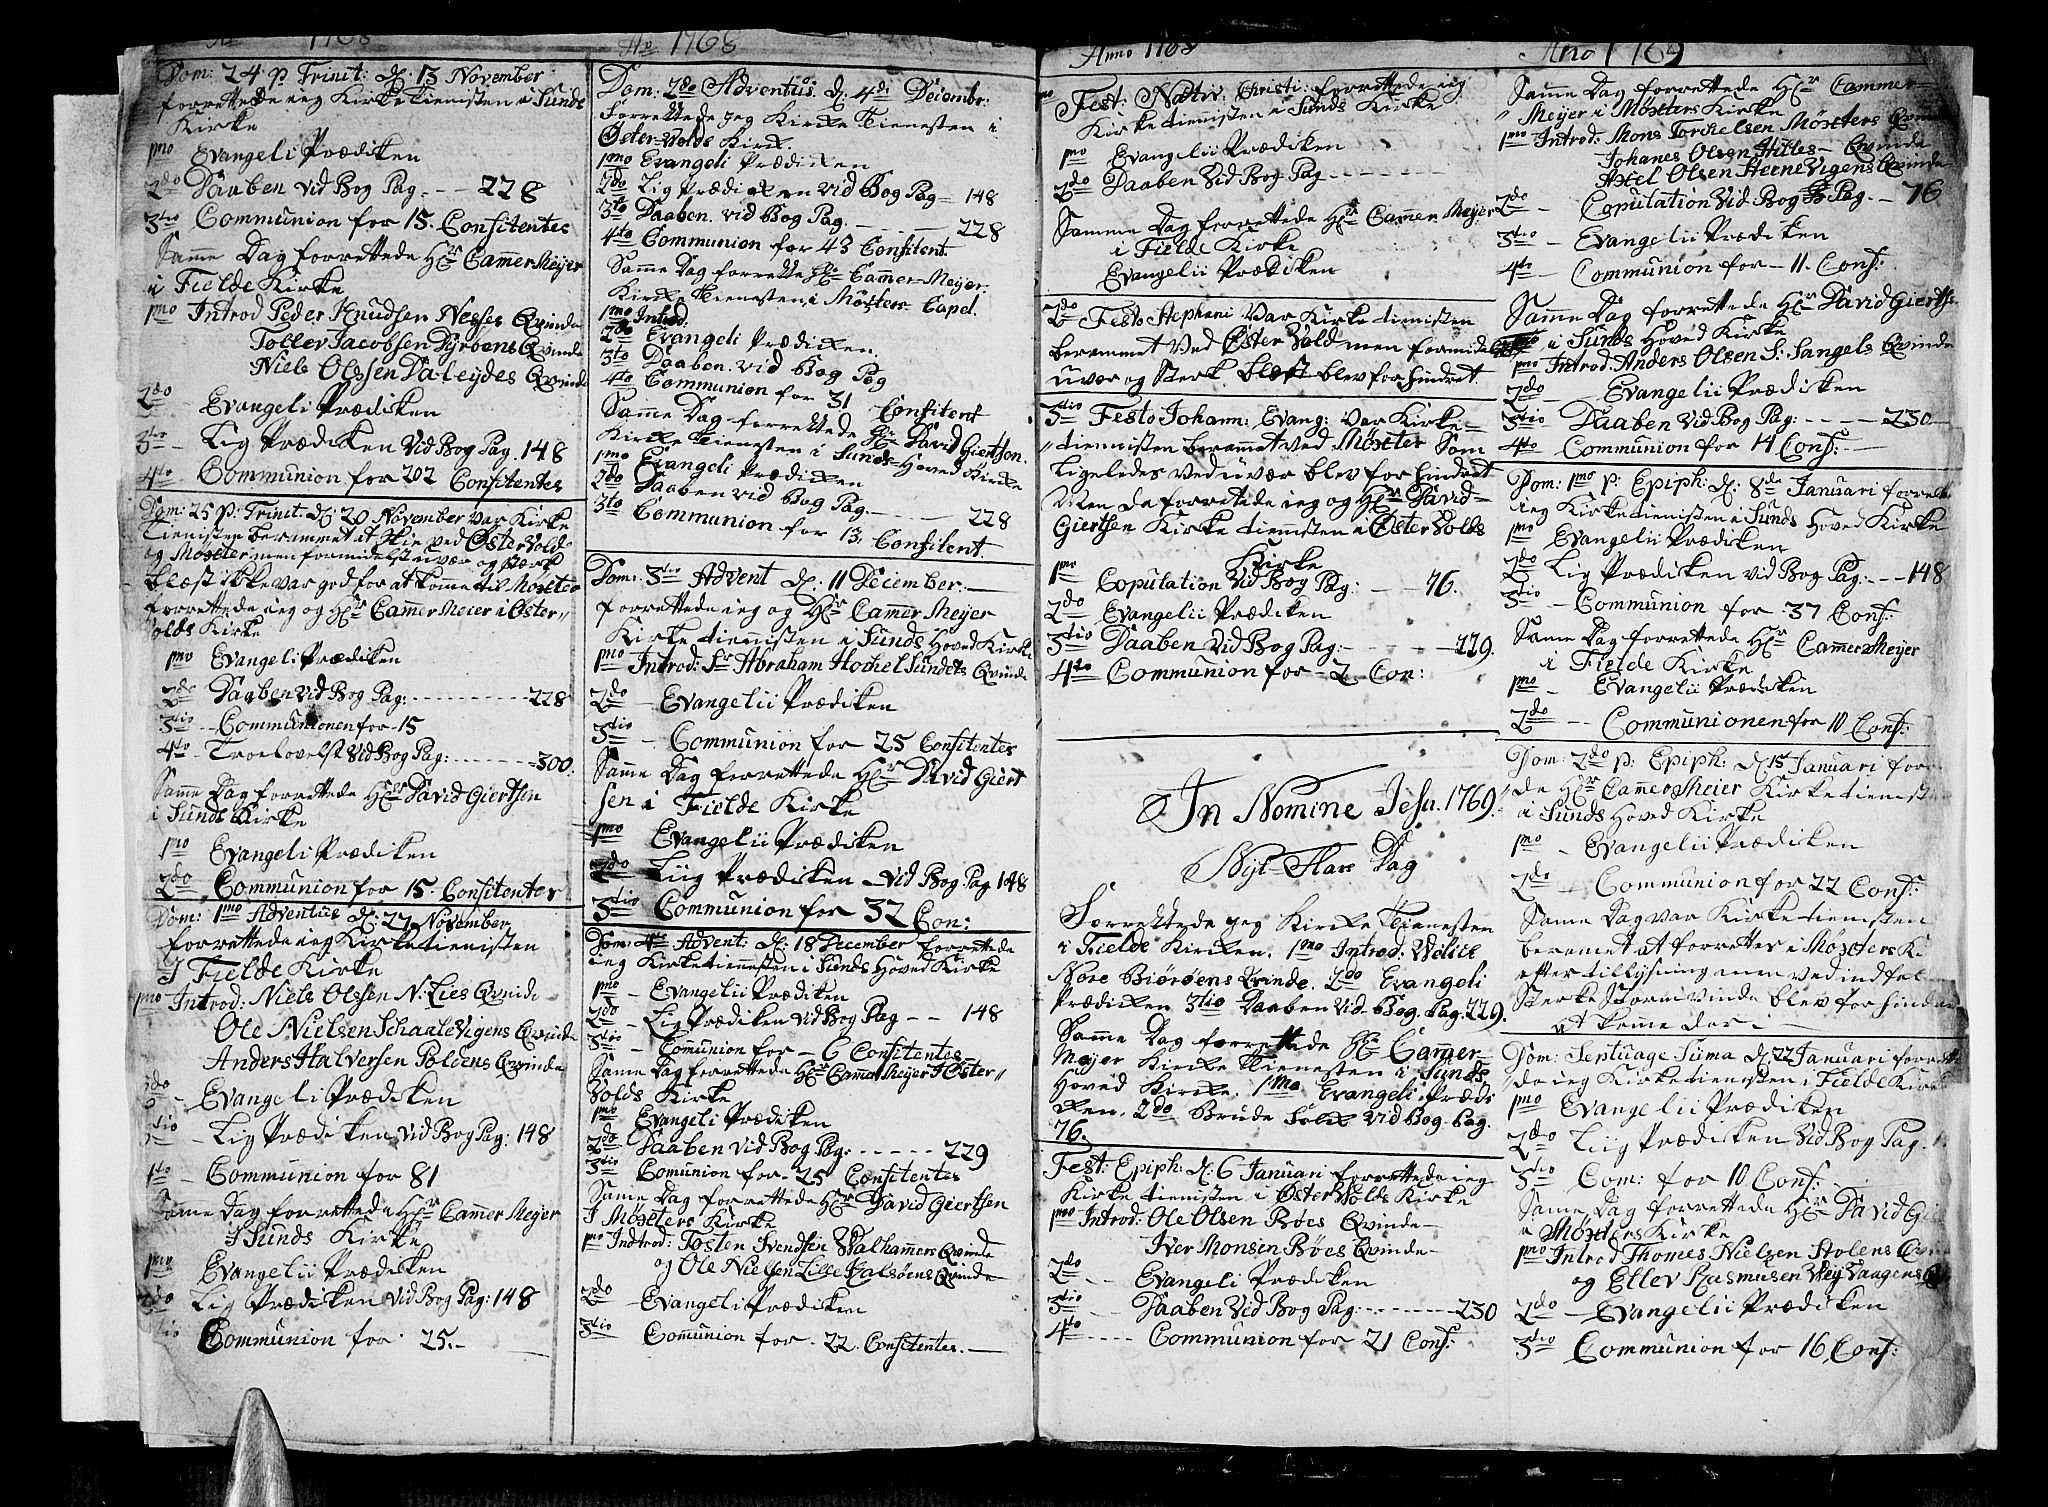 1768
Dom: 24 p Trinit: d. 13 November
forrettede ieg Kirke Tienisten i Sunds
Kirke
1mo Evangeli Prædiken
2do Daaben vid Bog Pag. - - 228
3tio Communion for 15. Confitentes
Samme Dag forrettede Hr Camer Meyer
i Fielde Kirke
1mo Introd Peder Knudsen Neses Qvinde
Toller Jacobsen Dyroens Qvinde
Niels Olssen Daleydes Qvinde
2do - Evangeli Prædiken
3tio - Lig Prædiken vid Bog Pag. 148
4to - Communion for 202 Confitentes
Dom: 25 p: Trinit: d: 20 November var Kirke
Tienisten berammet at skie ved Øster Vold
og Møxter men formedelst uvær og sterk
blæst ikke var god for at komme til Møxter
forrettede ieg og Hr Camer Meier i Øster
volds Kirke
1mo Evangeli Prædiken
2do Daaben vid Bog Pag: - - - 228
3tio - Communionen for 15
4to - Troelovelse vid Bog Pag: - - - 300.
Samme Dag forrettede Hr David Giertsen
i Sunds Kirke
1mo Evangeli Prædiken
2do Communion for 15. Confitentes
Dom: 1mo Adventus d: 27 November
forrettede ieg Kirke tienisten
I Fielde Kirke
1mo Introd: Niels Olssen N: Lies Qvinde
Ole Nielsen Schaale Vigens Qvinde
Anders Halversen Poldens Qvinde
2do - Evangeli Prædiken
3tio - Lig Prædiken vid Bog Pag: 148
4to - Communion for 81
Samme Dag forrettede Hr Camer Meyer
I Sunds Kirke
1mo Evangelii Prædiken
2do Lig Prædiken vid Bog Pag: 148
3tio Communion for 25.-
Ao 1768
Dom: 2do Adventus d: 4de Decembr:
Forrettede jeg Kirke Tienesten i
Øster-Volds Kirke.
1mo Evangeli Prædiken
2do Lig Prædiken vid Bog Pag - 148
3to Daaben. vid Bog Pag. - - - 228
4to Communion for 43 Confitent.
Samme Dag forrettede Hr Cammer-Meyer
Kirke Tienesten i Møxter Capel.
1mo Introd:
2do Evangeli Prædiken.
3to Daaben. vid Bog Pag
4to Communion for 31 Confitent
Samme Dag forrettede Hr David Giertson.
Kirke Tienesten i Sunds-Hoved Kirke
1mo Evangeli Prædiken
2do Daaben vid Bog Pag. - - - 228
3to Communion for 13. Confitent
Dom: 3tio Advent d: 11 December:
forrettede ieg og Hr Camer Meyer
Kirke tiennisten i Sunds Hoved Kirke
1mo Introd: Sr Abraham Hochel Sundets Qvinde
2do - Evangelii Prædiken
3tio - Communion for 25 Confitentes
Samme Dag forrettede Hr David Giert
sen i Fielde Kirke
1mo Evangelii Prædiken
2do Liig Prædiken vid Bog Pag 148
3tio Communion for 32 Con:
Dom: 4to Advent: d: 18 December forrettede
ieg Kirke tiennesten i Sunds Hoved Kirke
1mo - Evangelii Prædiken
2do - Lig Prædiken vid Bog Pag - - 148
3tio - Comunion for - 6 Confitentes
Same Dag forrettede Hr Camer Meyer I Øster
Volds Kirke
1mo Evangeli Prædiken
2do Daaben vid Bog Pag: - - - 229
3tio Comunion for - 25 Confitentes
Same Dag forrettede Hr David Giertsen
I Møxters Kirke
1mo Indtrod: Tosten Svendsen Walhammers Qvinde
og Ole Nielsen Lille Kalsøens Qvinde
2do - Evangeli Prædiken
3tio - Comunion for - 22. Confitentes.
Anno 1768
Fest: Nativ: Christi forrettede ieg
Kirke tienisten i Sunds Kirke
1mo Evangelii Prædiken
2do Daaben vid Bog Pag - - - -
Samme Dag forrettede Hr Cammer Meyer
i Fielde Kirke
Evangelii Prædiken
2do Festo Stepheni Var Kirke tienisten
berammet ved Øster Vold men formedelst
uvær og Sterk blæst blev forhindret
3tio Festo Johann: Evang: var Kirke=
tiennisten berammet ved Møxter Som
ligeledes ved uvær blev forhindret
Men da forrettede ieg og Hr David
Giertsen Kirke tiennisten i Øster Volds
Kirke
1mo Copulation vid Bog Pag: - - 76.
2do Evangelii Prædiken
3tio Daaben vid Bog Pag: - - - 229.
4to Communion for 2 Con:
In Nomine Jesu. 1769.
Nyt-Aars Dag
Forrettede jeg Kirke Tienesten
i Fielde Kirken. 1mo Introd: Willik
Nøre Biørøens Qvinde. 2do Evangeli
Prædiken 3tio Daaben vid Bog. Pag. 229.
Samme Dag forrettede Hr Cammer-
Meyer Kirke Tienesten i Sunds
Hoved Kirke. 1mo. Evangeli Prædi
ken. 2do Brude Folk vid Bog. Pag.
76.
Fest: Epiph: d: 6 Januari forrettede ieg
Kirke tienisten i Øster Volds Kirke
1mo Introd: Ole Olsen Bøes Qvinde-
Iver Monsen Bøes Qvinde-
2do - - Evangeli Prædiken
3tio - - Daaben vid Bog Pag: - - - 230
4to - - - Communion for 21 Conf:
Ano 1769
Samme Dag forrettede Hr Cammer=
Meyer i Møxters Kirke
1mo Introd: Mons Torchelsen Møxters Qvinde
Johanes Olsen Hilles - Qvinde
Axel Olsen Herne Vigens Qvinde
2do - Copulation vid Bog Pag. - 76
3tio - Evangelii Prædiken
4to - Communion for - 11. Conf:
Samme Dag forrettede Hr David Gierts
i Sunds Hoved Kirke
1mo Introd: Anders Olsen S: Sangels Qvinde
2do - Evangelii Prædiken
3tio Daaben vid Bog Pag: - - - 230
4to Communion for 14 Conf: -
Dom: 1mo p: Epiph: d: 8de Januari forrette
ieg Kirke tienisten i Sunds Hoved Kirke
1mo Evangelii Prædiken
2do Lig Prædiken vid Bog Pag: - - 148
3tio - Communion for 37 Conf:
Same Dag forrettede Hr Camer Meyer
i Fielde Kirke
1mo - Evangelii Prædiken
2do - - Communionen for 10 Conf:
Dom: 2do p: Epiph: d 15 Januari forre
de Hr Camer Meier Kirke tienist
i Sunds Hoved Kirke
1mo - Evangelii Prædiken
2do - Communion for 22 Conf:
Same Dag var Kirke tienisten
beramet at forrettes i Møxters K
efter tillysning men ved indfal
Sterke Storm vinde blev forhindre
at komme der i -
Dom: Septuage Suma d: 22 Januari forrette
de ieg Kirke tienesten i Fielde Kirke
1mo Evangelii Prædiken
2do Liig Prædiken vid Bog Pag.
3tio Com: for 10 Conf:
Same Dag forrettede Hr David Gi
i Møxters Kirke
1mo Introd Thomes Nielsen Stolens Qvin
og Eller Rasmusen Vey Vaagens Q
2do - Evangelii Prædiken
3tio Communion for 16 Conf: